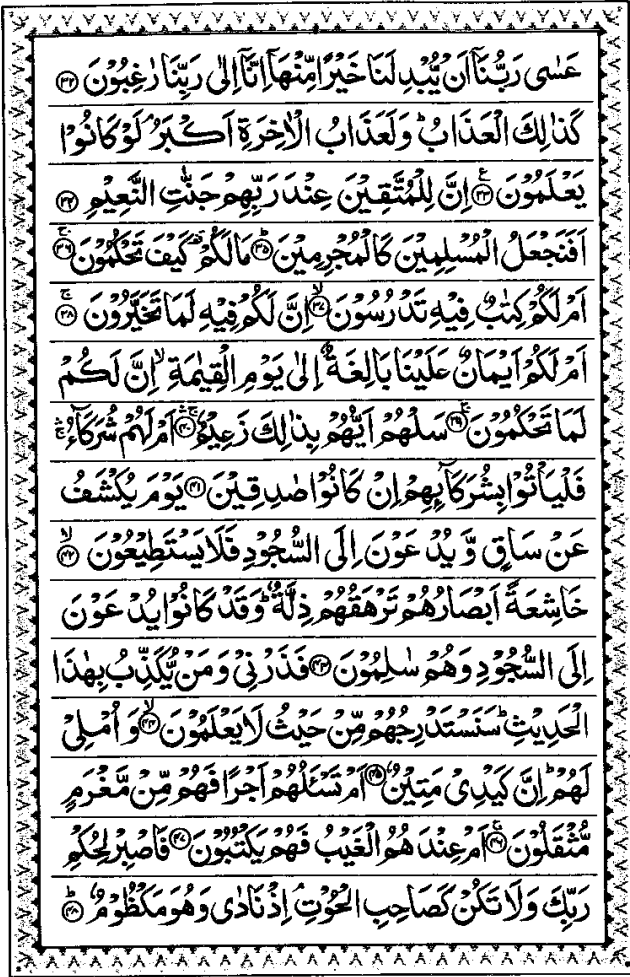 عَسٰى رَبُّنَاۤ اَنْ يُّبْدِلَنَا خَيْرًا مِّنْهَاۤ اِنَّاۤ اِلٰى رَبِّنَا رٰغِبُوْنَ ۝۳۲
كَذٰلِكَ الْعَذَابُ ؕ وَلَعَذَابُ الْاٰخِرَةِ اَكْبَرُ ۘ لَوْ كَانُوْا
يَعْلَمُوْنَ ۝۳۳ اِنَّ لِلْمُتَّقِيْنَ عِنْدَ رَبِّهِمْ جَنّٰتِ النَّعِيْمِ ۝۳۴
اَفَنَجْعَلُ الْمُسْلِمِيْنَ كَالْمُجْرِمِيْنَ ؕ۝۳۵ مَا لَكُمْ ۥ كَيْفَ تَحْكُمُوْنَ ۚ۝۳۶
اَمْ لَكُمْ كِتٰبٌ فِيْهِ تَدْرُسُوْنَ ۙ۝۳۷ اِنَّ لَكُمْ فِيْهِ لَمَا تَخَيَّرُوْنَ ۚ۝۳۸
اَمْ لَكُمْ اَيْمَانٌ عَلَيْنَا بَالِغَةٌ اِلٰى يَوْمِ الْقِيٰمَةِ ۙ اِنَّ لَكُمْ
لَمَا تَحْكُمُوْنَ ۚ۝۳۹ سَلْهُمْ اَيُّهُمْ بِذٰلِكَ زَعِيْمٌ ۚۛ۝۴۰ اَمْ لَهُمْ شُرَكَآءُ ۚۛ
فَلْيَاْتُوْا بِشُرَكَآئِهِمْ اِنْ كَانُوْا صٰدِقِيْنَ ۝۴۱ يَوْمَ يُكْشَفُ
عَنْ سَاقٍ وَّيُدْعَوْنَ اِلَى السُّجُوْدِ فَلَا يَسْتَطِيْعُوْنَ ۙ۝۴۲
خَاشِعَةً اَبْصَارُهُمْ تَرْهَقُهُمْ ذِلَّةٌ ؕ وَقَدْ كَانُوْا يُدْعَوْنَ
اِلَى السُّجُوْدِ وَهُمْ سٰلِمُوْنَ ۝۴۳ فَذَرْنِيْ وَمَنْ يُّكَذِّبُ بِهٰذَا
الْحَدِيْثِ ؕ سَنَسْتَدْرِجُهُمْ مِّنْ حَيْثُ لَا يَعْلَمُوْنَ ۙ۝۴۴ وَاُمْلِيْ
لَهُمْ ؕ اِنَّ كَيْدِيْ مَتِيْنٌ ۝۴۵ اَمْ تَسْـَٔلُهُمْ اَجْرًا فَهُمْ مِّنْ مَّغْرَمٍ
مُّثْقَلُوْنَ ۚ۝۴۶ اَمْ عِنْدَهُمُ الْغَيْبُ فَهُمْ يَكْتُبُوْنَ ۝۴۷ فَاصْبِرْ لِحُكْمِ
رَبِّكَ وَلَا تَكُنْ كَصَاحِبِ الْحُوْتِ ۘ اِذْ نَادٰى وَهُوَ مَكْظُوْمٌ ؕ۝۴۸